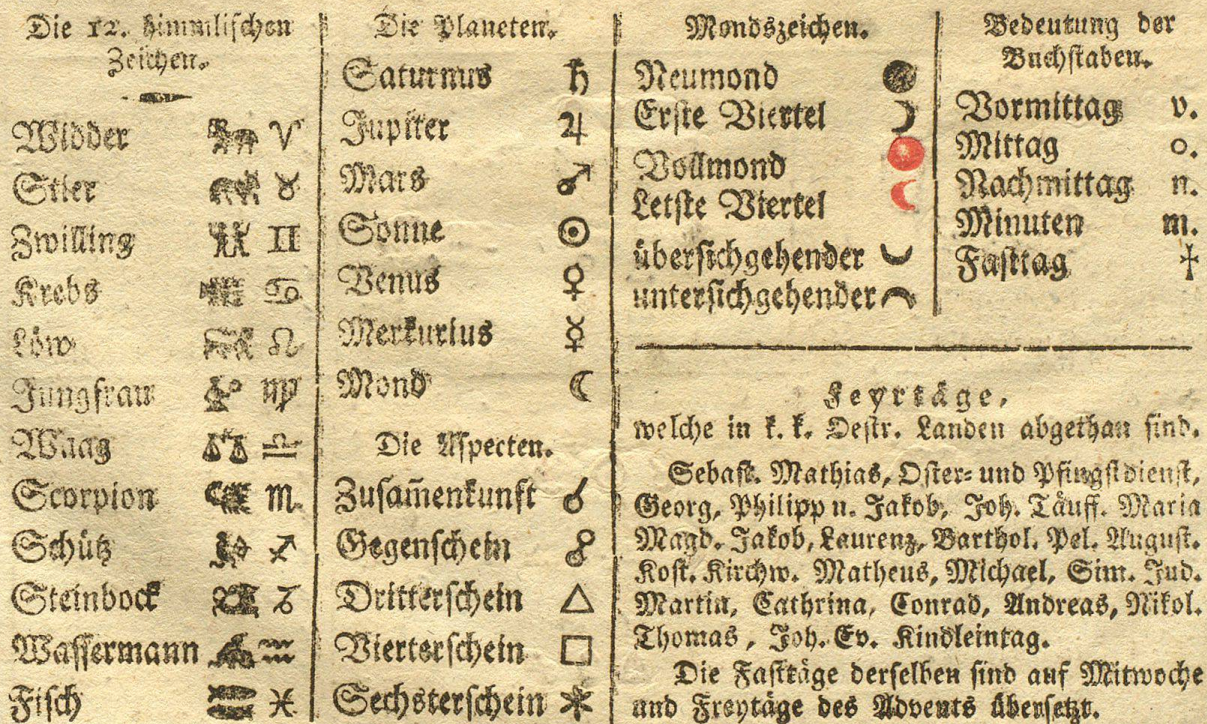 Die 12. himmlischen
Zeichen.
Widder ♈
Stier ♉
Zwilling ♊
Krebs ♋
Löw ♌
Jungfrau ♍
Waag ♎
Scorpion ♏
Schütz ♐
Steinbock ♑
Wassermann ♒
Fisch ♓
Die Planeten.
Saturnus ♄
Jupiter ♃
Mars ♂
Sonne ☉
Venus ♀
Merkurius ☿
Mond ☾
Die Aspecten.
Zusam̅enkunft ☌
Gegenschein ☍
Dritterschein △
Vierterschein □
Sechsterschein ⚹
Mondszeichen.
Neumond
Erste Viertel
Vollmond
Letste Viertel
übersichgehender
untersichgehender
Bedeutung der
Buchstaben.
Vormittag v.
Mittag o.
Nachmittag n.
Minuten m.
Fasttag †
Feyrtäge,
welche in k. k. Oestr. Landen abgethan sind.
Sebast. Mathias, Oster- und Pfingstdienst,
Georg, Philipp u. Jakob, Joh. Täuff. Maria
Magd. Jakob, Laurenz, Barthol. Pel. August.
Kost. Kirchw. Matheus, Michael, Sim. Jud.
Martin, Cathrina, Conrad, Andreas, Nikol.
Thomas, Joh. Ev. Kindleintag.
Die Fasttäge derselben sind auf Mitwoche
und Freytäge des Advents übersetzt.